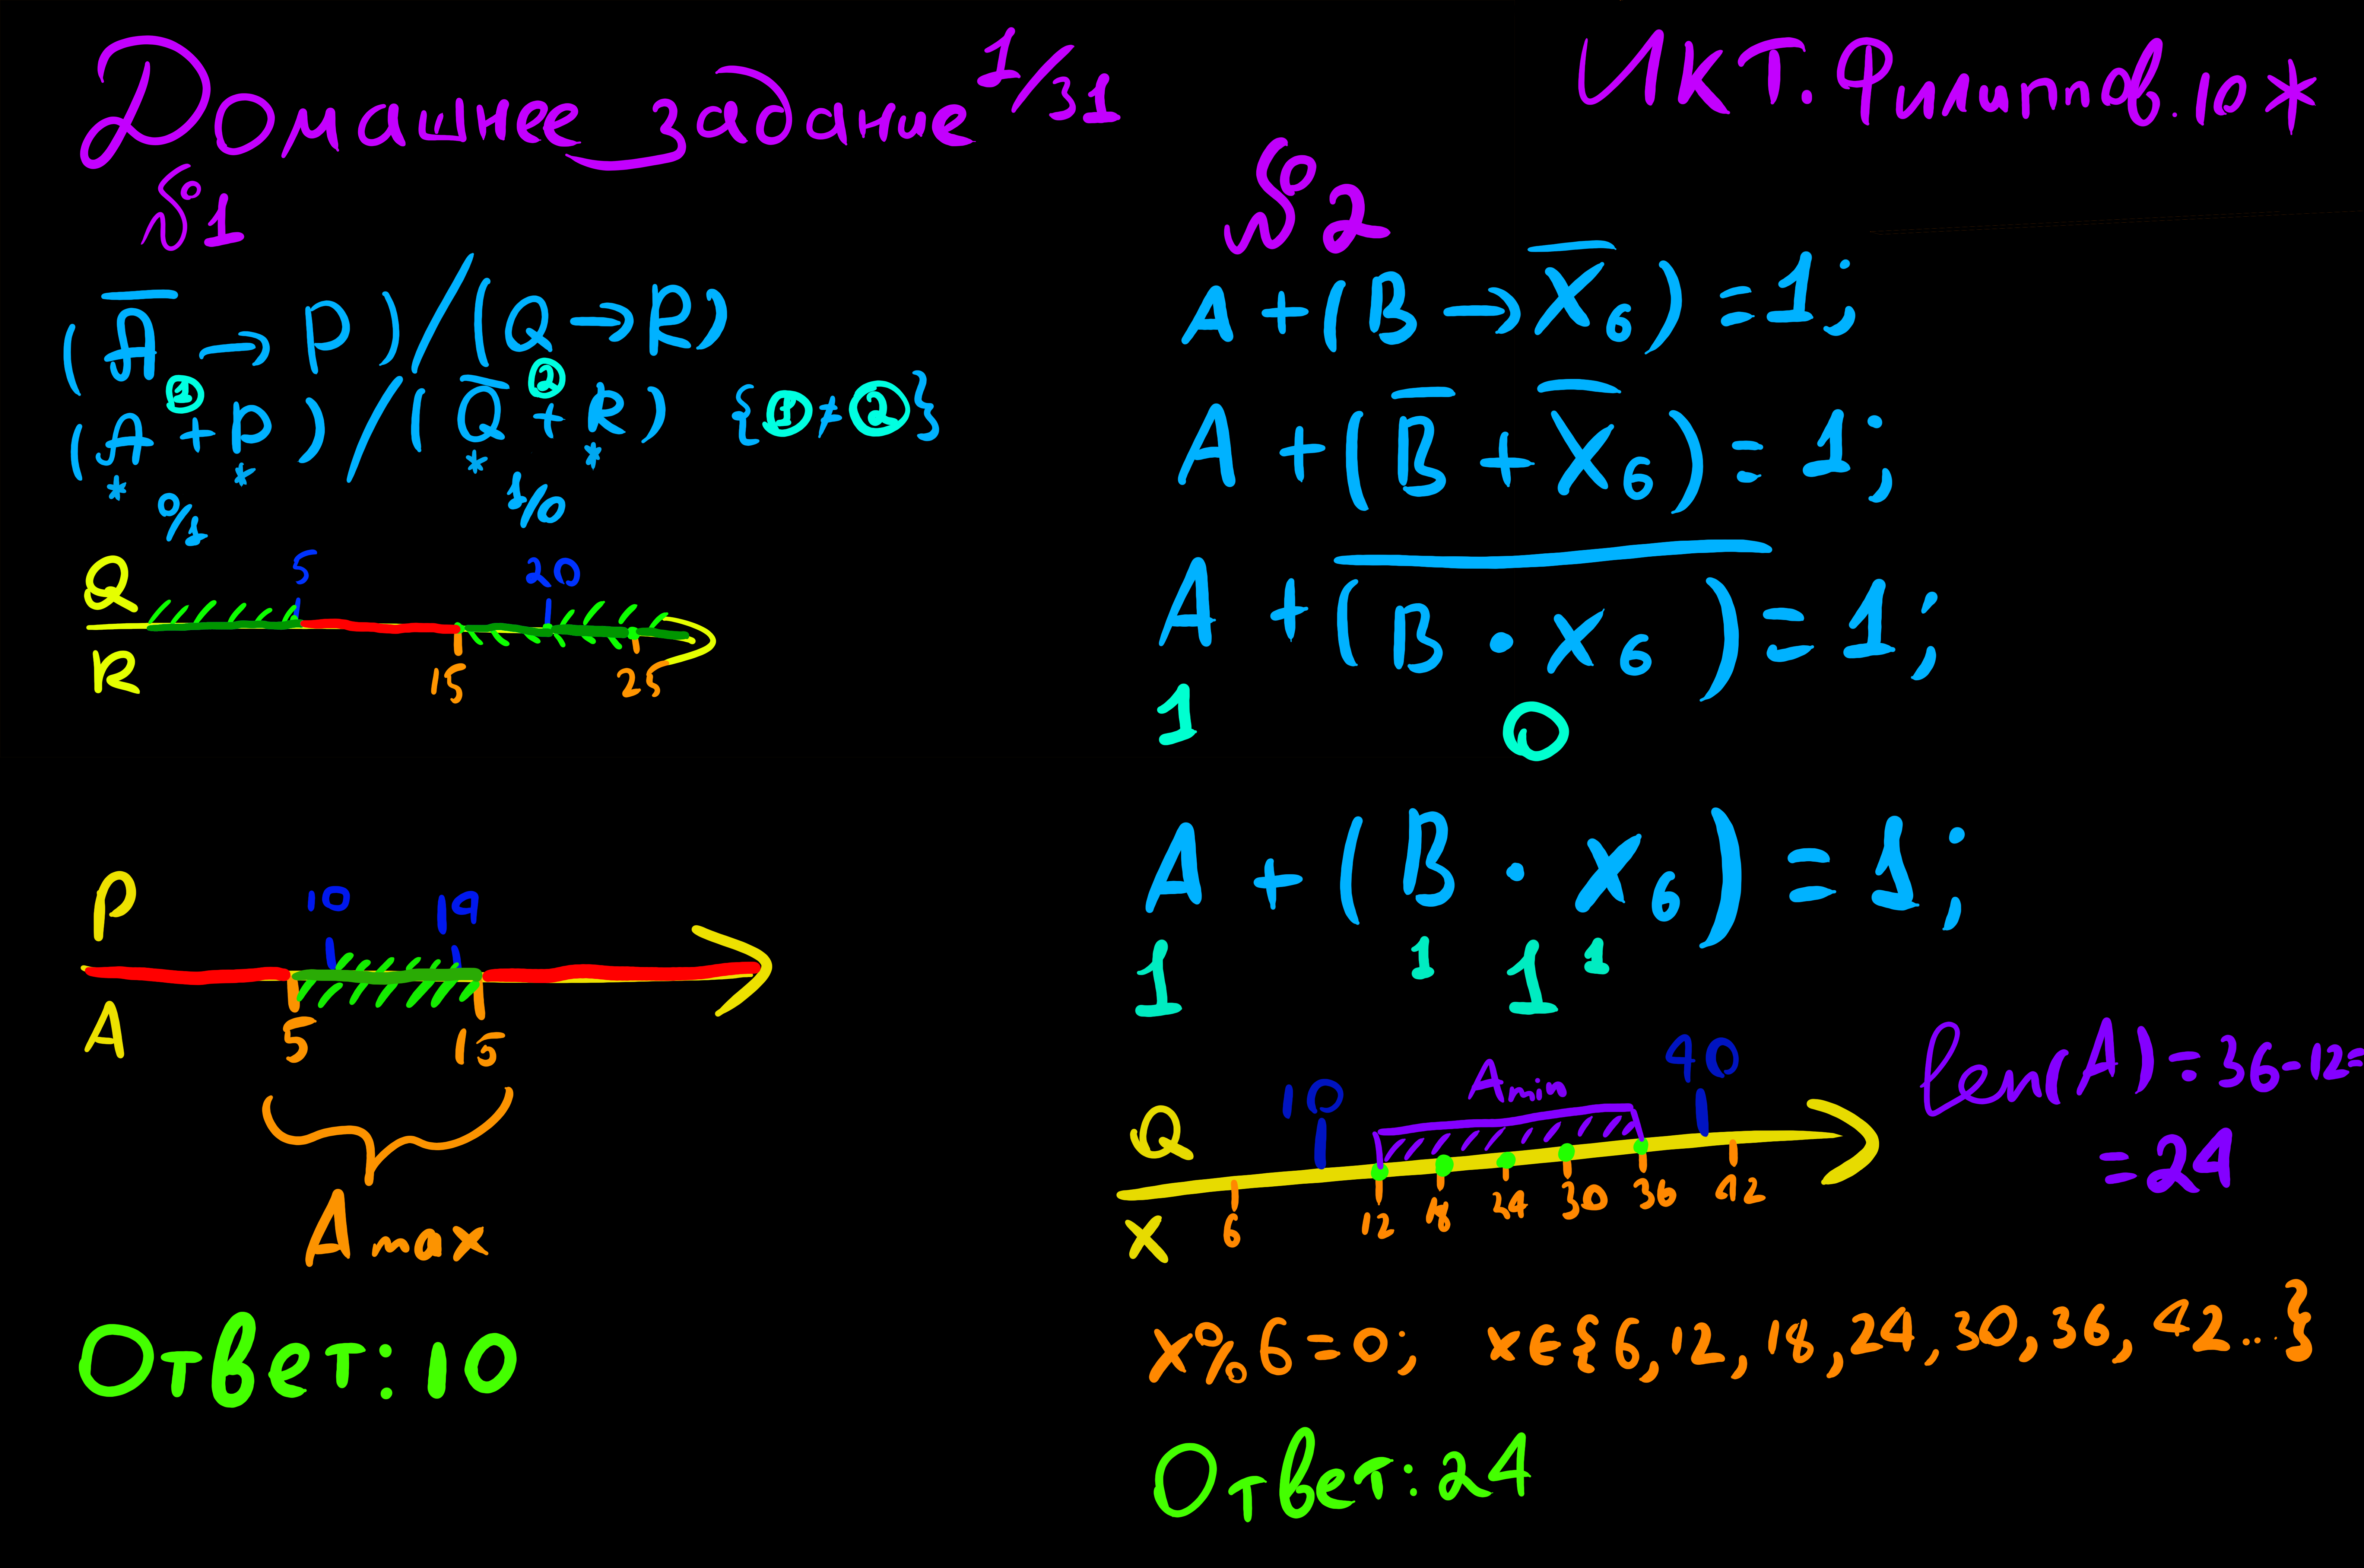 Домашнее задание 1/31
ИКТ. Филиппов. 10*
№1
(A̅ → P) / (Q → R)
(A + P) / (Q̅ + R) {① ≠ ②}
① ②
* * * *
0/1 1/0
Q 5 20
R 15 25
P 10 19
A 5 15
Amax
Ответ: 10
№2
A + (B → X̅₆) = 1;
A + (B̅ + X̅₆) = 1;
A + (B · x₆)̅ = 1;
1 0
A + (B · x₆) = 1;
1 1 1 1
Q 10 Amin 40
X 6 12 18 24 30 36 42
len(A) = 36 - 12 =
= 24
x%6 = 0; x∈{6, 12, 18, 24, 30, 36, 42...}
Ответ: 24